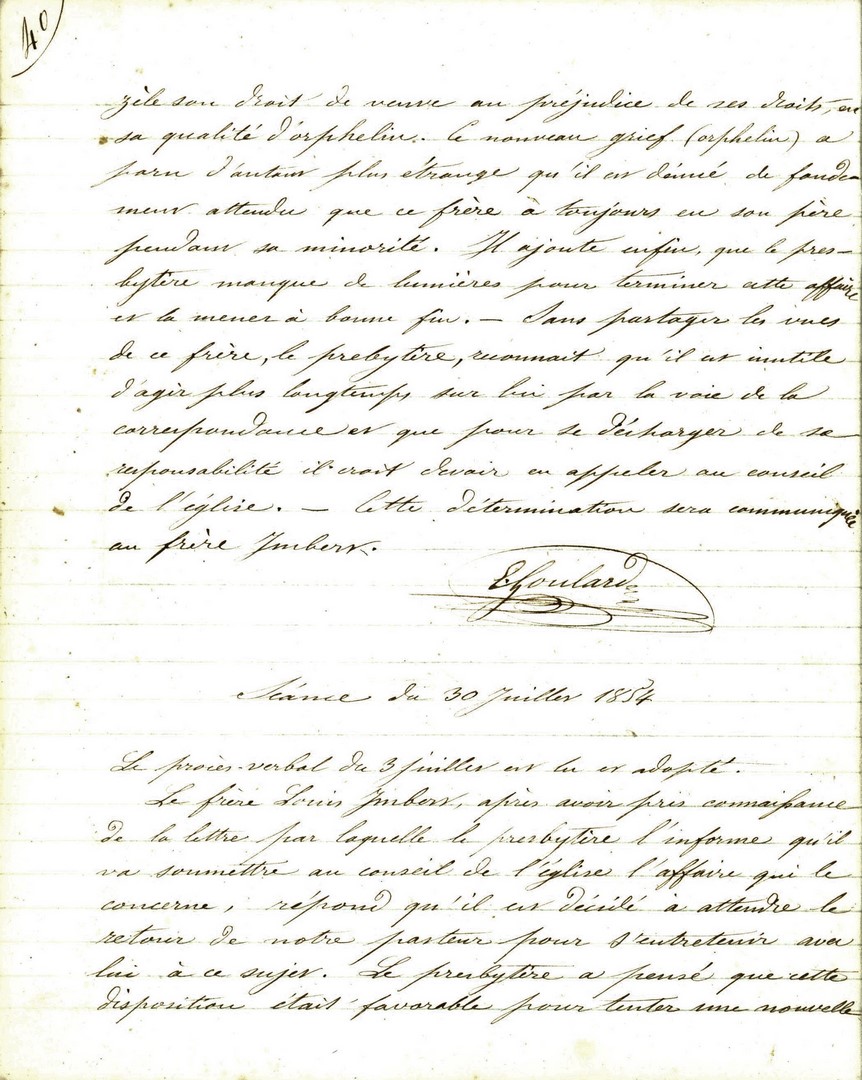 40
zèle son droit de veuve au préjudice de ses droits, en
sa qualité d'orphelin. Ce nouveau grief (orphelin) a
paru d'autant plus étrange qu'il est dénué de fonde-
ment attendu que ce frère à toujours eu son père
pendant sa minorité. Il ajoute enfin, que le pres-
bytère manque de lumières pour terminer cette affaire
et la mener à bonne fin. — Sans partager les vues
de ce frère, le prebytère, reconnait qu'il est inutile
d'agir plus longtemps sur lui par la voie de la
correspondance et que pour se décharger de sa
responsabilité il croit devoir en appeler au conseil
de l'église. — Cette détermination sera communiquée
au frère Imbert.
E. Goulard
Séance du 30 Juillet 1854
Le procès-verbal du 3 juillet est lu et adopté.
Le frère Louis Imbert, après avoir pris connaissance
de la lettre par laquelle le presbytère l'informe qu'il
va soumettre au conseil de l'église l'affaire qui le
concerne, répond qu'il est décidé à attendre le
retour de notre pasteur pour s'entretenir avec
lui à ce sujet. Le presbytère a pensé que cette
disposition était favorable pour tenter une nouvelle